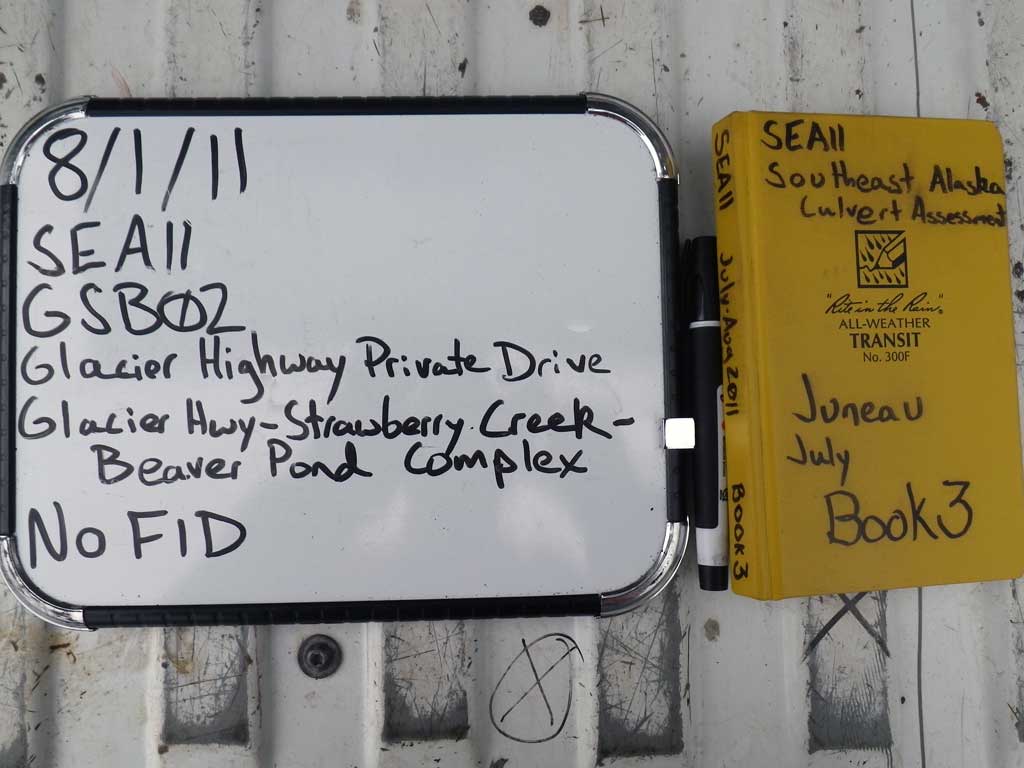 8/1/11
SEA11
GSB02
Glacier Highway Private Drive
Glacier Hwy-Strawberry Creek-
Beaver Pond Complex
No FID
SEA11 July-Aug 2011 Book 3
SEA11
Southeast Alaska
Culvert Assessment
"Rite in the Rain"®
ALL-WEATHER
TRANSIT
No. 300F
Juneau
July
Book 3